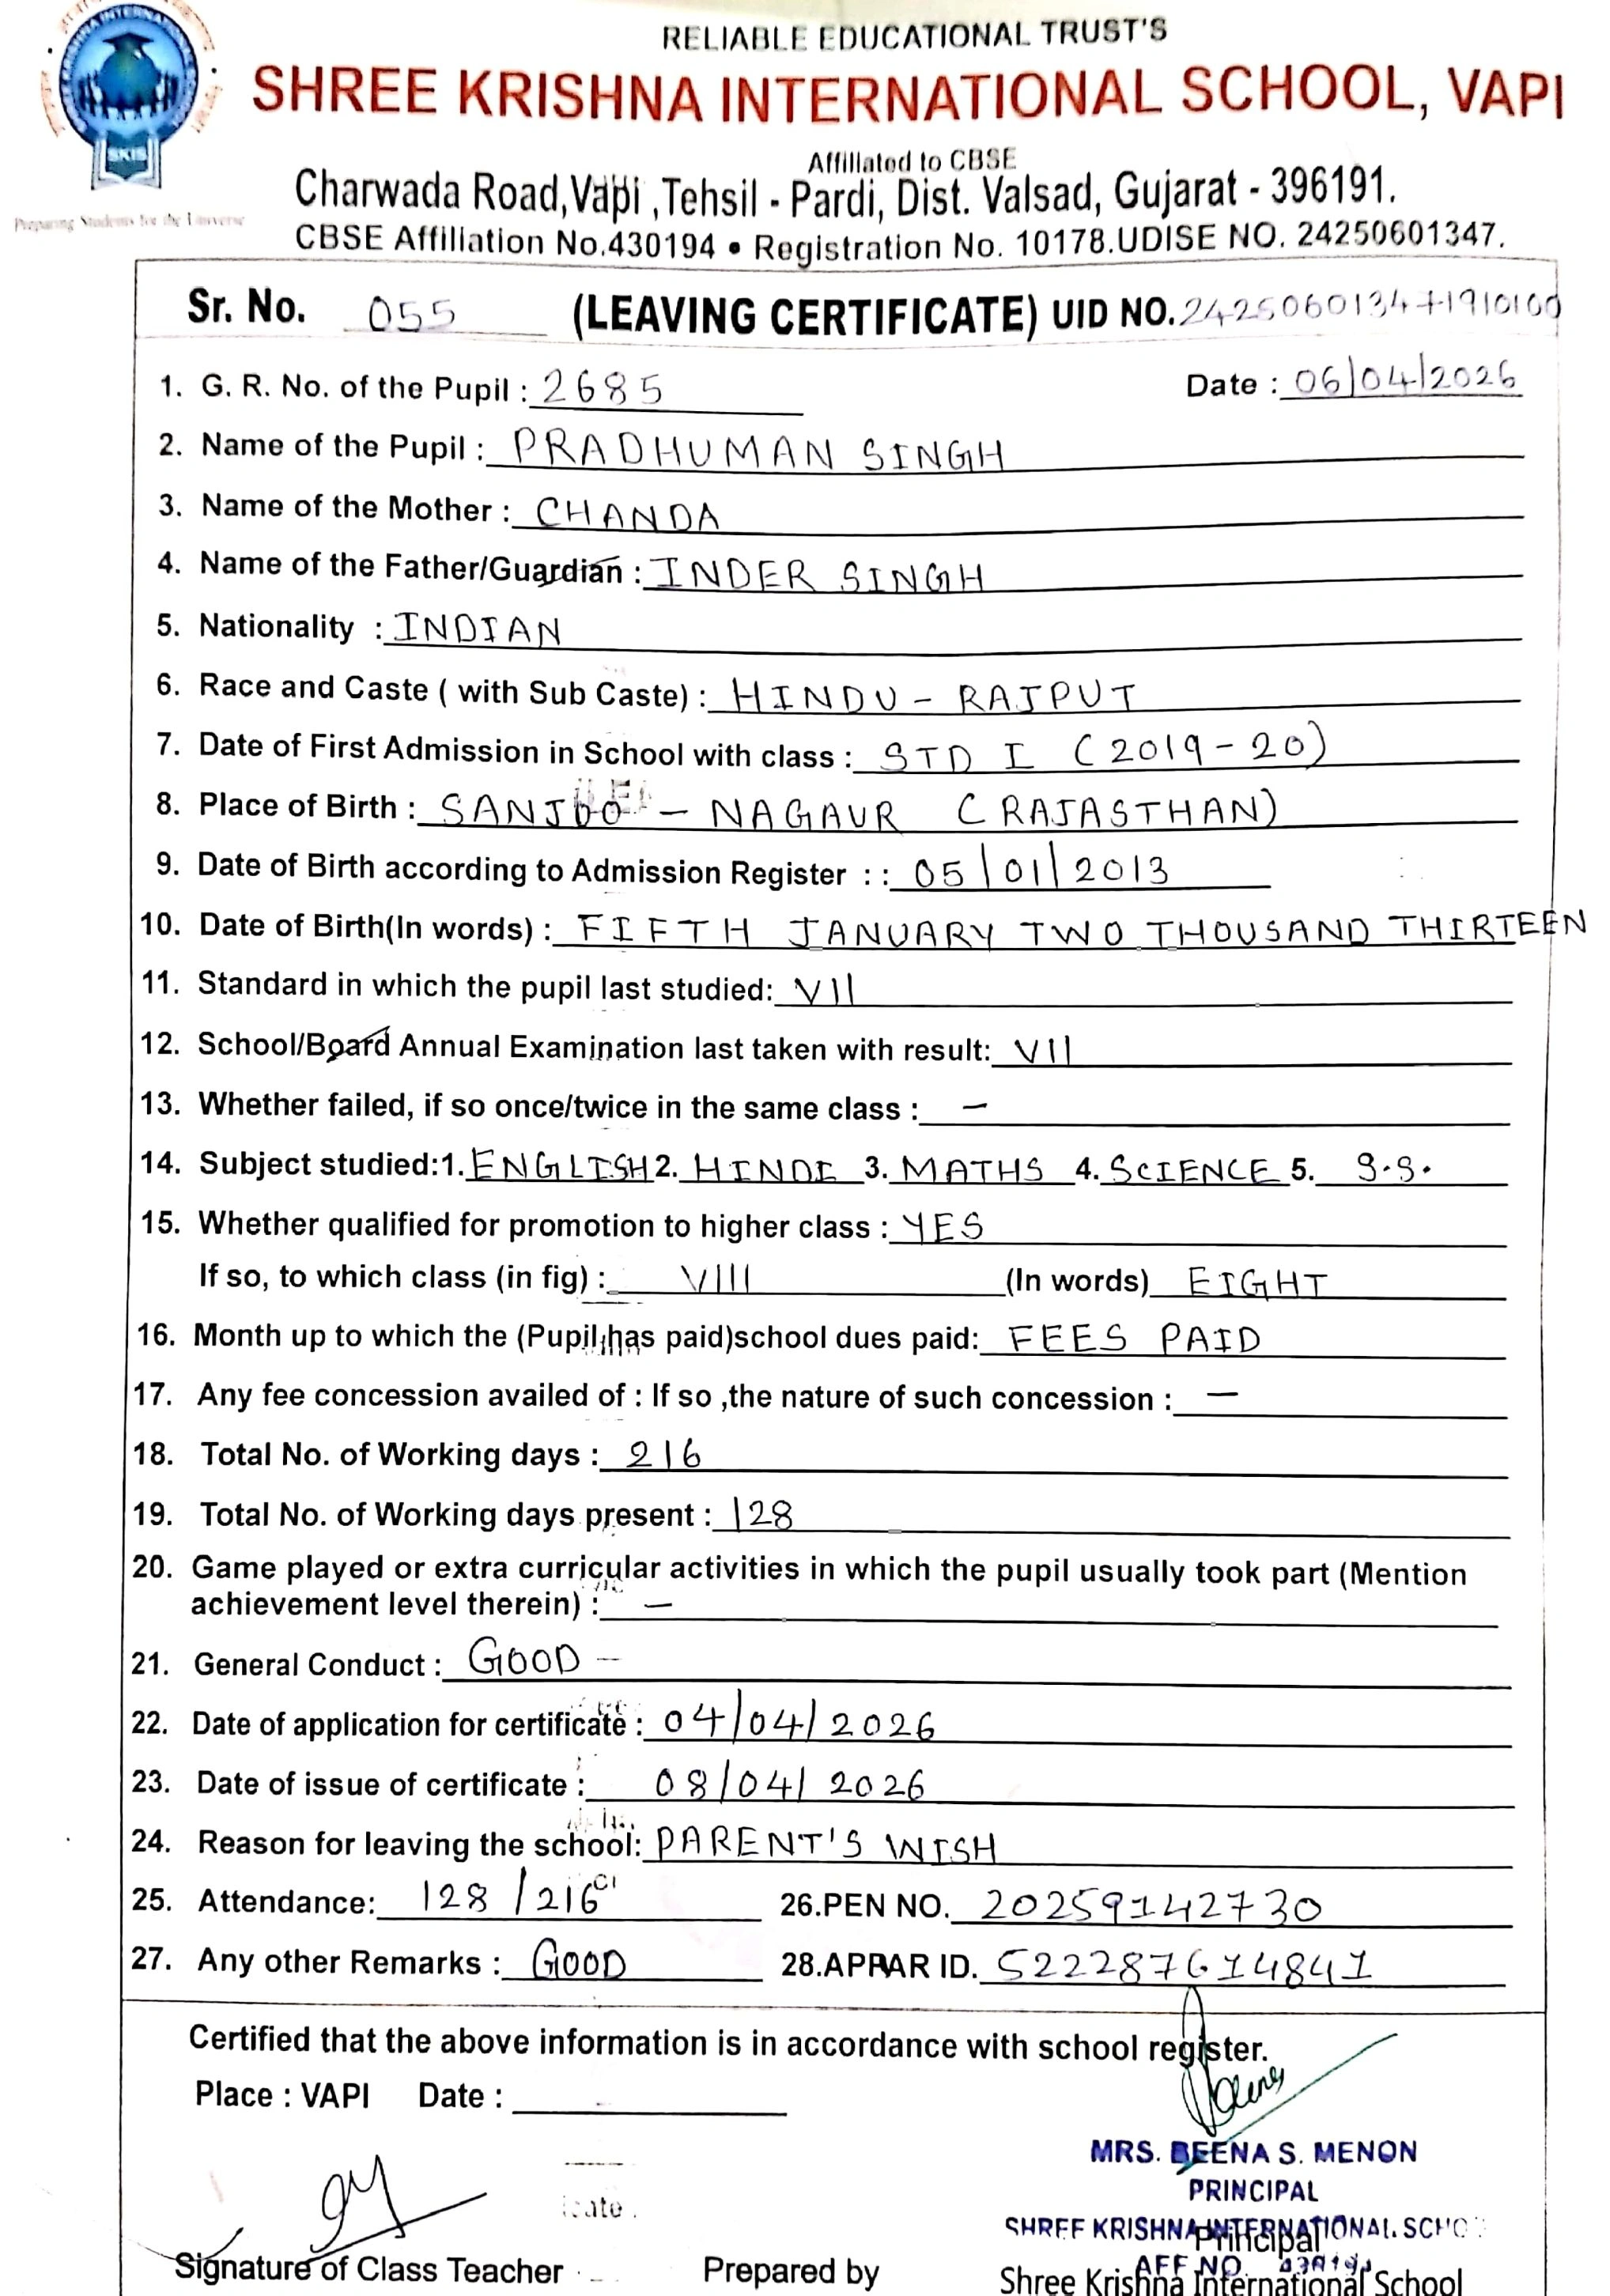 RELIABLE EDUCATIONAL TRUST'S
SHREE KRISHNA INTERNATIONAL SCHOOL, VAPI
Affiliated to CBSE
Charwada Road,Vapi ,Tehsil - Pardi, Dist. Valsad, Gujarat - 396191.
Preparing Students for the Universe
CBSE Affiliation No.430194 • Registration No. 10178.UDISE NO. 24250601347.
SKIS
Sr. No. 055 (LEAVING CERTIFICATE) UID NO.242506013471910100
1. G. R. No. of the Pupil : 2685 Date : 06/04/2026
2. Name of the Pupil : PRADHUMAN SINGH
3. Name of the Mother : CHANDA
4. Name of the Father/Guardian : INDER SINGH
5. Nationality : INDIAN
6. Race and Caste ( with Sub Caste) : HINDU - RAJPUT
7. Date of First Admission in School with class : STD I (2019-20)
8. Place of Birth : SANJOO - NAGAUR (RAJASTHAN)
9. Date of Birth according to Admission Register : : 05/01/2013
10. Date of Birth(In words) : FIFTH JANUARY TWO THOUSAND THIRTEEN
11. Standard in which the pupil last studied: VII
12. School/Board Annual Examination last taken with result: VII
13. Whether failed, if so once/twice in the same class : -
14. Subject studied:1. ENGLISH 2. HINDI 3. MATHS 4. SCIENCE 5. S.S.
15. Whether qualified for promotion to higher class : YES
If so, to which class (in fig) : VIII (In words) EIGHT
16. Month up to which the (Pupil has paid)school dues paid: FEES PAID
17. Any fee concession availed of : If so ,the nature of such concession : -
18. Total No. of Working days : 216
19. Total No. of Working days present : 128
20. Game played or extra curricular activities in which the pupil usually took part (Mention
achievement level therein) : -
21. General Conduct : GOOD -
22. Date of application for certificate : 04/04/2026
23. Date of issue of certificate : 08/04/2026
24. Reason for leaving the school: PARENT'S WISH
25. Attendance: 128 /216 26.PEN NO. 20259142730
27. Any other Remarks : GOOD 28.APRAR ID. 522287614841
Certified that the above information is in accordance with school register.
Place : VAPI Date :
MRS. BEENA S. MENON
PRINCIPAL
SHREE KRISHNA INTERNATIONAL SCHO
Principal
AFF NO. 430194
Signature of Class Teacher Prepared by Shree Krishna International School